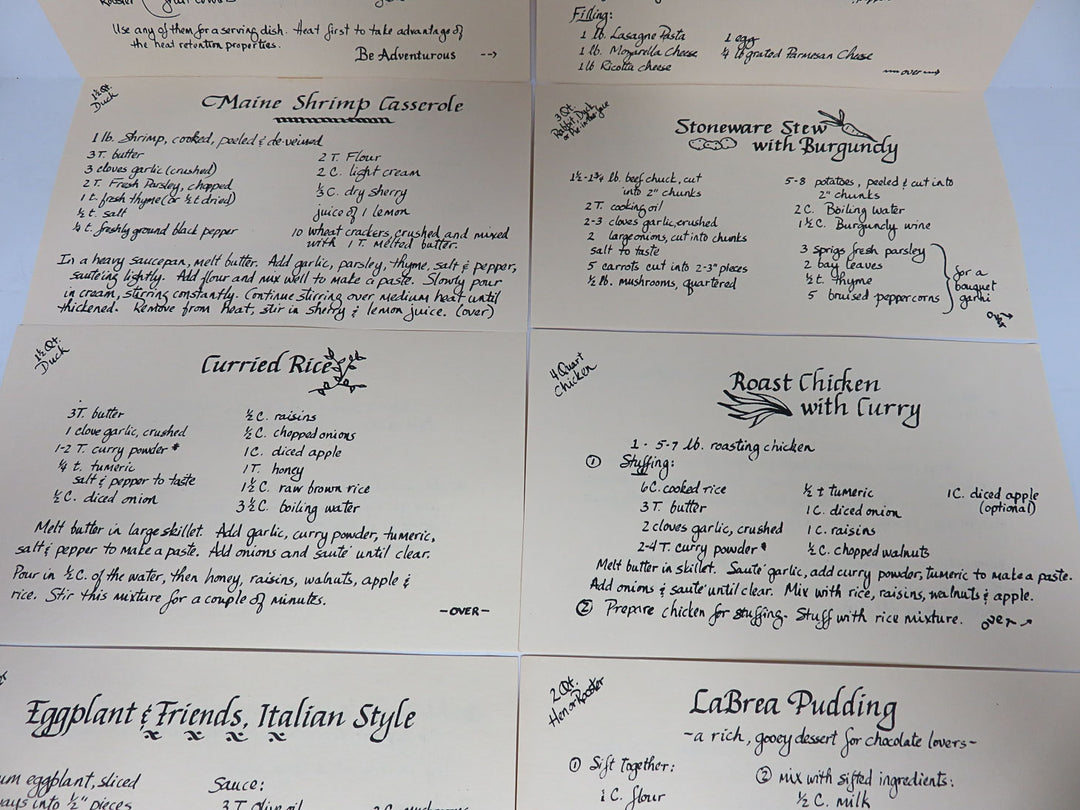 Rooster
Use any of them for a serving dish. Heat first to take advantage of
the heat retention properties.
Be Adventurous →
Filling:
1 lb. Lasagne Pasta
1 lb. Mozarella Cheese
1 lb Ricotta cheese
1 egg
¼ lb grated Parmesan Cheese
over →
1½ Qt.
Duck
Maine Shrimp Casserole
1 lb. Shrimp, cooked, peeled & de-veined
3 T. butter
3 cloves garlic (crushed)
2 T. Fresh Parsley, chopped
1 t. fresh thyme (or ½ t dried)
½ t. salt
¼ t. freshly ground black pepper
2 T. Flour
2 C. light cream
⅓ C. dry sherry
juice of 1 lemon
10 wheat crackers, crushed and mixed
with 1 T. melted butter.
In a heavy saucepan, melt butter. Add garlic, parsley, thyme, salt & pepper,
sauteing lightly. Add flour and mix well to make a paste. Slowly pour
in cream, stirring constantly. Continue stirring over medium heat until
thickened. Remove from heat, stir in sherry & lemon juice. (over)
3 Qt.
Rabbit, Duck
Stoneware Stew
with Burgundy
1½-1¾ lb. beef chuck, cut
into 2" chunks
2 T. cooking oil
2-3 cloves garlic, crushed
2 large onions, cut into chunks
salt to taste
5 carrots cut into 2-3" pieces
½ lb. mushrooms, quartered
5-8 potatoes, peeled & cut into
2" chunks
2 C. Boiling water
1½ C. Burgundy wine
3 sprigs fresh parsley
2 bay leaves
½ t. thyme
5 bruised peppercorns
for a
bouquet
garni
over →
1½ Qt.
Duck
Curried Rice
3T. butter
1 clove garlic, crushed
1-2 T. curry powder *
¼ t. tumeric
salt & pepper to taste
½ C. diced onion
½ C. raisins
½ C. chopped onions
1 C. diced apple
1 T. honey
1½ C. raw brown rice
3½ C. boiling water
Melt butter in large skillet. Add garlic, curry powder, tumeric,
salt & pepper to make a paste. Add onions and sauté until clear.
Pour in ½ C. of the water, then honey, raisins, walnuts, apple &
rice. Stir this mixture for a couple of minutes.
-OVER-
4 Quart
Chicken
Roast Chicken
with Curry
1 - 5-7 lb. roasting chicken
① Stuffing:
6 C. cooked rice
3 T. butter
2 cloves garlic, crushed
2-4 T. curry powder *
½ t tumeric
1 C. diced onion
1 C. raisins
½ C. chopped walnuts
1 C. diced apple
(optional)
Melt butter in skillet. Sauté garlic, add curry powder, tumeric to make a paste.
Add onions & sauté until clear. Mix with rice, raisins, walnuts & apple.
② Prepare chicken for stuffing. Stuff with rice mixture. over →
Eggplant & Friends, Italian Style
eggplant, sliced
into ½" pieces
Sauce:
3 T. olive oil
2 Qt.
Hen or Rooster
LaBrea Pudding
~a rich, gooey dessert for chocolate lovers~
① Sift Together:
1 C. flour
② Mix with sifted ingredients:
½ C. milk